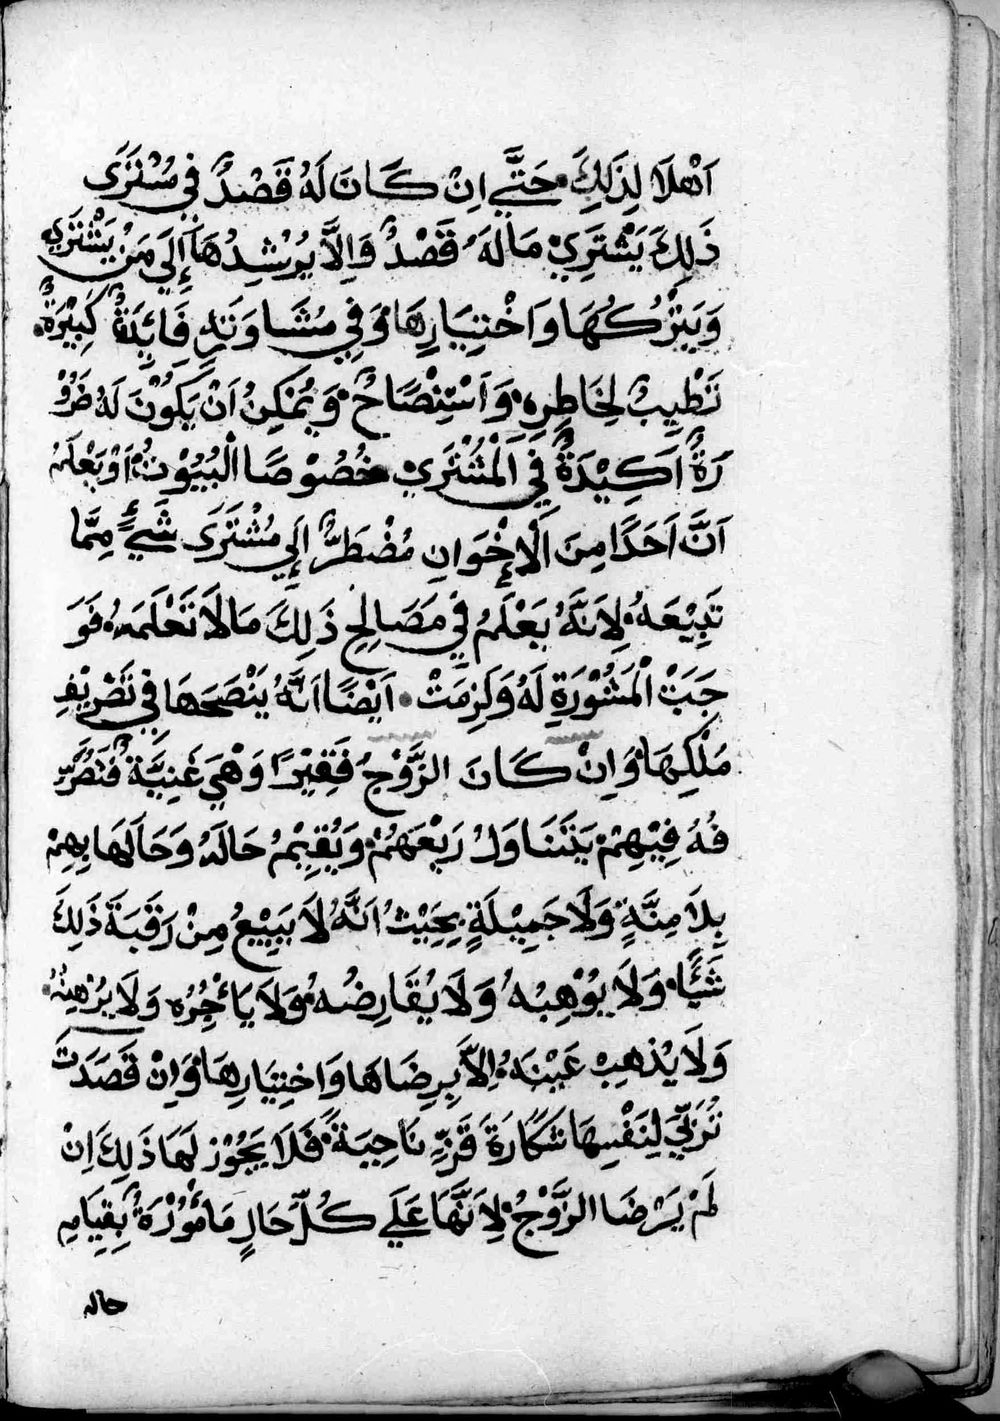 اَهْلًا لِذَلِكَ حَتَّى اِنْ كَانَ لَهُ قَصْدٌ فِي مُشْتَرَى
ذَلِكَ يَشْتَرِيْ مَا لَهُ قَصْدٌ وَاِلَّا يُرْشِدُهَا إِلَى مَنْ يَشْتَرِي
وَيَتْرُكُهَا وَاخْتِيَارِهَا وَفِي مُشَاوَرَتِهِ فَائِدَةٌ كَبِيْرَةٌ
تَطْيِيبٌ لِخَاطِرِهِ وَاَسْتِنْصَاحٌ وَيُمْكِنُ اَنْ يَكُوْنَ لَهُ ضَرُوْ
رَةٌ اَكِيْدَةٌ فِي الْمُشْتَرِيْ خُصُوْصًا الْبُيُوْتُ اَوْ يَعْلَمُ
اَنَّ اَحَدًا مِنَ اَلْإِخْوَانِ مُضْطَرٌّ إِلَي مُشْتَرَى شَيْءٍ مِمَّا
تَبِيْعَهُ لِاَنَّهُ يَعْلَمُ فِي مَصَالِحِ ذَلِكَ مَا لَا تَعْلَمَهُ فَوَ
جَبَتْ الْمَشُوْرَةِ لَهُ وَلَزِمَتْ اَيْضًا اَنَّهُ يَنْصَحَهَا فِي تَصْرِيْفِ
مَلْكِهَا وَاِنْ كَانَ الزَّوْجُ فَقِيْرًا وَهْيَ غَنِيَّةٌ فَتَصَرُّ
فُهُ فِيْهِمْ يَتَنَاوَلُ رَيْعَهُمْ وَيُقِيْمُ حَالَهُ وَحَالَهَا بِهِمْ
بِلَا مِنَّةٍ وَلَا جَمِيْلَةٍ بِحَيْثُ اَنَّهُ لَا يَبِيْعُ مِنْ رَقَبَةَ ذَلِكَ
شَيًْا وَلَا يُوْهِبُهُ وَلَا يُقَارِضُهُ وَلَا يَأْجُرُه وَلَا يُرْهِنُهُ
وَلَا يُذْهِبْ عَيْنَهُ اِلَّا بِرِضَاهَا وَاخْتِيَارِهَا وَاِنْ قَصَدَتْ
تُرَبِّيْ لِنَفْسِهَا شَكَارَةَ قَزٍّ نَاحِيَةً فَلَا يَجُوْز لَهَا ذَلِكَ اِنْ
لَمْ يَرْضَا الزَّوْجُ لِاَنَّهَا عَلَي كُلِّ حَالٍ مَأْمُوْرَةٌ بِقِيَامِ
حاله